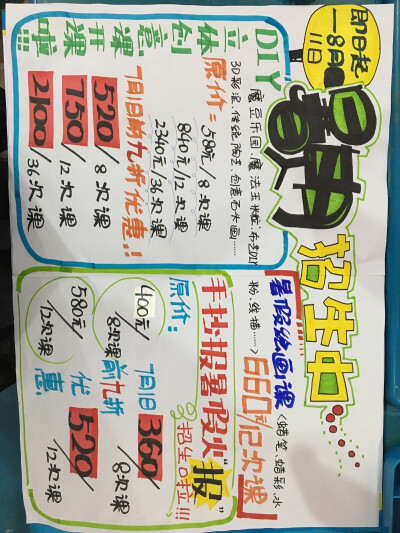 即日起
—8月
11日
暑期
招生中......
DIY
立体创意课开课啦!!!
魔豆乐园、魔法玉米粒、布艺DIY
3D彩泥、传统陶艺、创意石头画......
原价=580元/8次课
840元/12次课
2340元/36次课
7月1日前九折优惠!!
520/8次课
750/12次课
2100/36次课
暑假绘画课〈蜡笔、蜡彩、水
粉、线描......〉660元/12次课
手抄报暑假火“报”
招生中啦!!!
原价:
400元/8次课
580元/12次课
7月1日前九折优惠
360/8次课
520/12次课